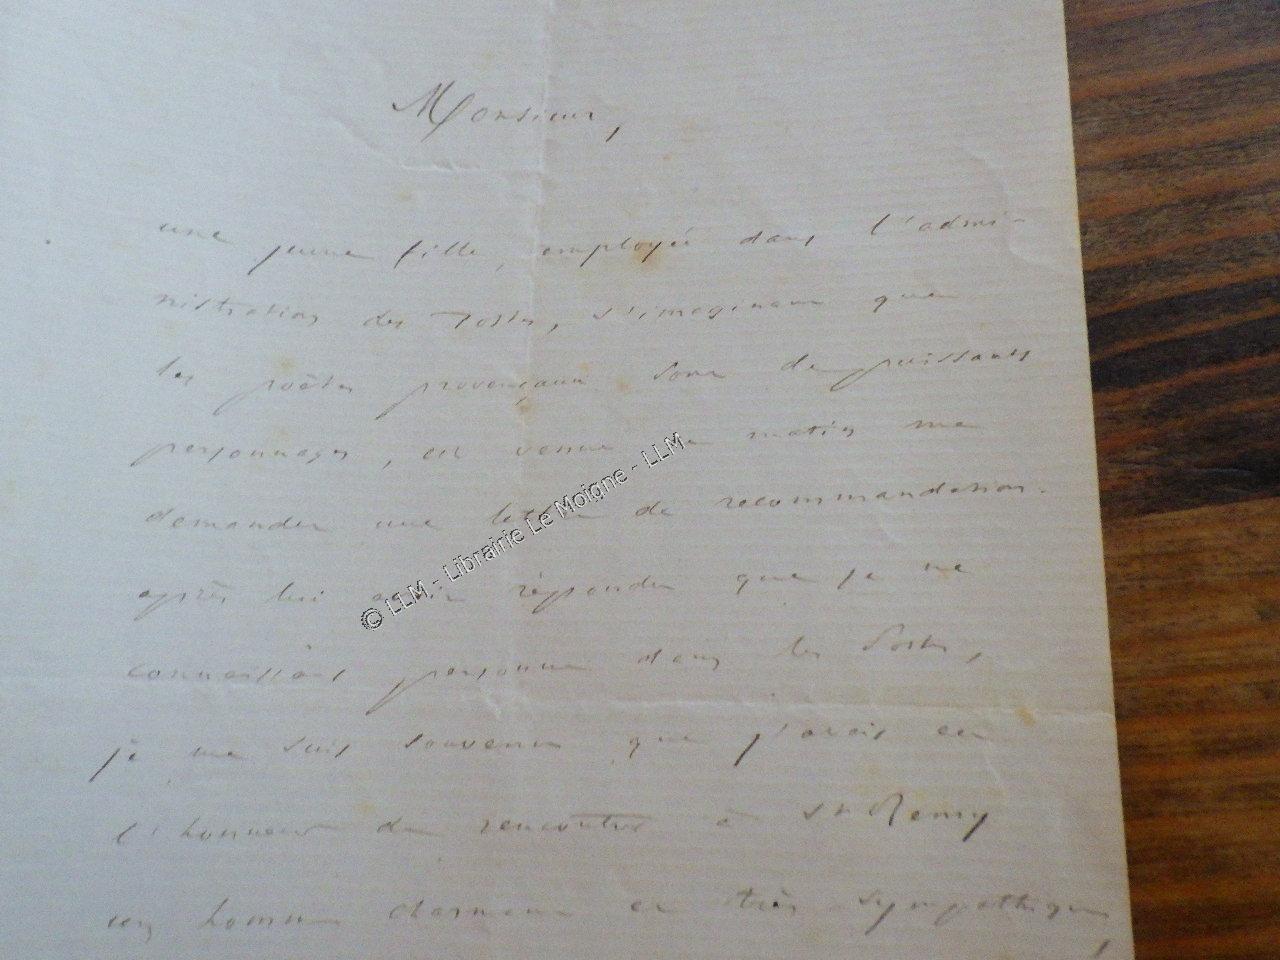 Monsieur,
une jeune fille, employée dans l'admi-
nistration des Postes, s'imaginant que
les poètes provençaux sont de puissants
personnages, est venue ce matin me
demander une lettre de recommandation.
après lui avoir répondu que je ne
connaissais personne dans les Postes,
je me suis souvenu que j'avais eu
l'honneur de rencontrer à St Remy
un homme charmant et très sympathique,
© LLM - Librairie Le Moigne - LLM